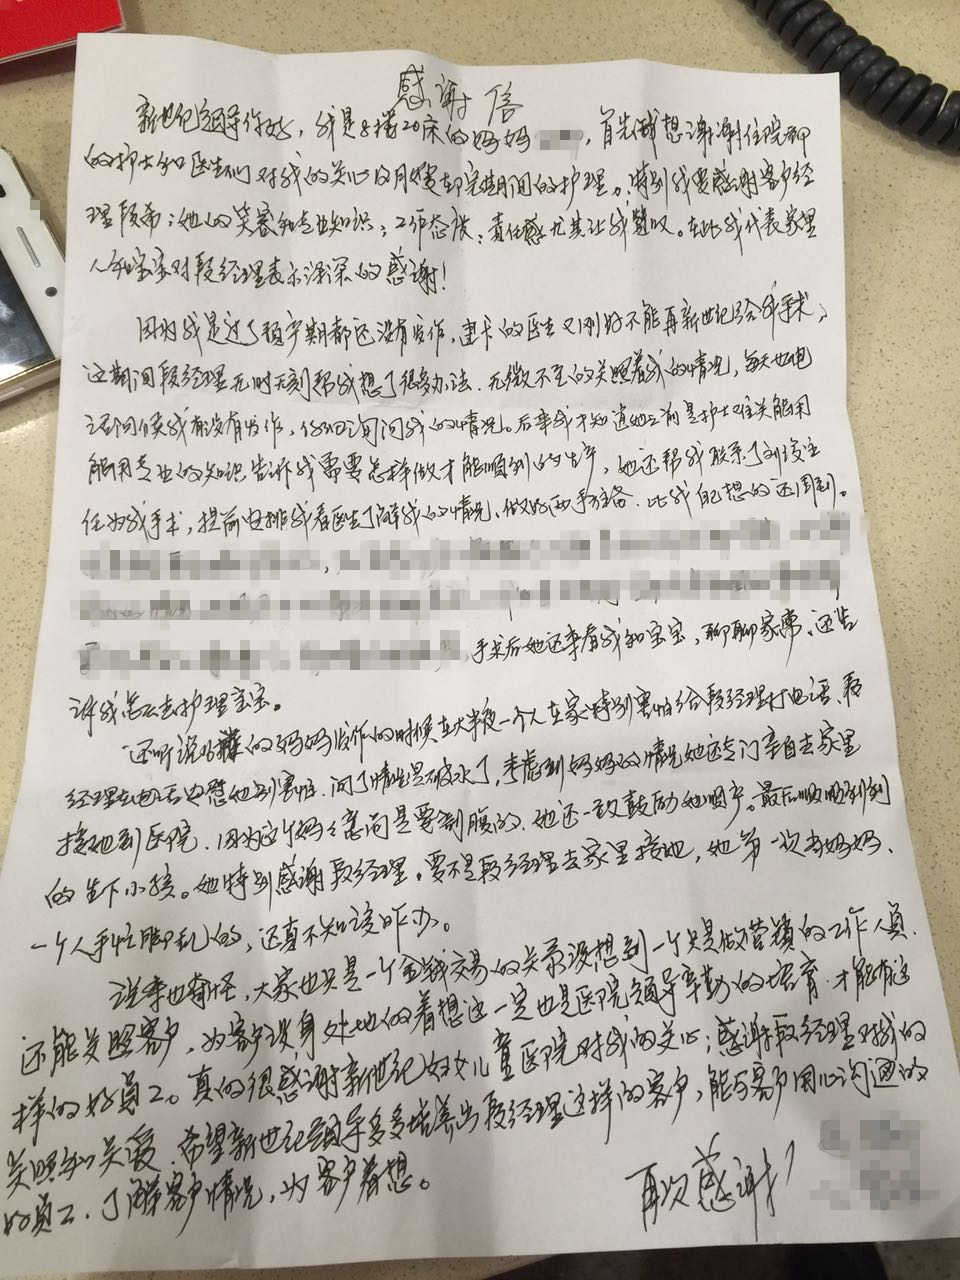 感谢信
新世纪领导你好，我是8楼20床的妈妈，首先我想谢谢住院部
的护士和医生们对我的关心及月嫂在院期间的护理。特别我要感谢客户经
理段希；她的笑容和专业知识；工作态度；责任感尤其让我赞叹。在此我代表家里
人和宝宝对段经理表示深深的感谢！
因为我是过了预产期都还没有发作，建卡的医生又刚好不能再新世纪给我手术，
这期间段经理无时无刻帮我想了很多办法.无微不至的关照着我的情况，每天如电
话问候我有没有发作，仔细询问我的情况。后来我才知道她之前是护士难关能用
能用专业的知识告诉我需要怎样做才能顺利的生产，她还帮我联系了刘俊主
任为我手术，提前安排我看医生了解我的情况、做好两手准备.比我自己想的还周到。
，手术后她还来看我和宝宝，聊聊家常、还告
诉我怎么去护理宝宝。
还听说的妈妈发作的时候在大半夜一个人在家特别害怕给段经理打电话、段
经理在电话安慰他别害怕.问了情况是破水了，考虑到妈妈的情况她还专门亲自去家里
接她到医院.因为这个妈妈意向是要剖腹的.她还一致鼓励她顺产。最后顺顺利利
的生下小孩。她特别感谢段经理。要不是段经理去家里接她，她第一次当妈妈、
一个人手忙脚乱的，还真不知该咋办。
说来也奇怪，大家也只是一个金钱交易的关系没想到一个只是做营销的工作人员.
还能关照客户，为客户设身处地的着想这一定也是医院领导辛勤的培育.才能有这
样的好员工。真的很感谢新世纪妇女儿童医院对我的关心；感谢段经理对我的
关照和关爱.希望新世纪领导多多培养出段经理这样的客户，能与客户用心沟通的
好员工.了解客户情况，为客户着想。
再次感谢！